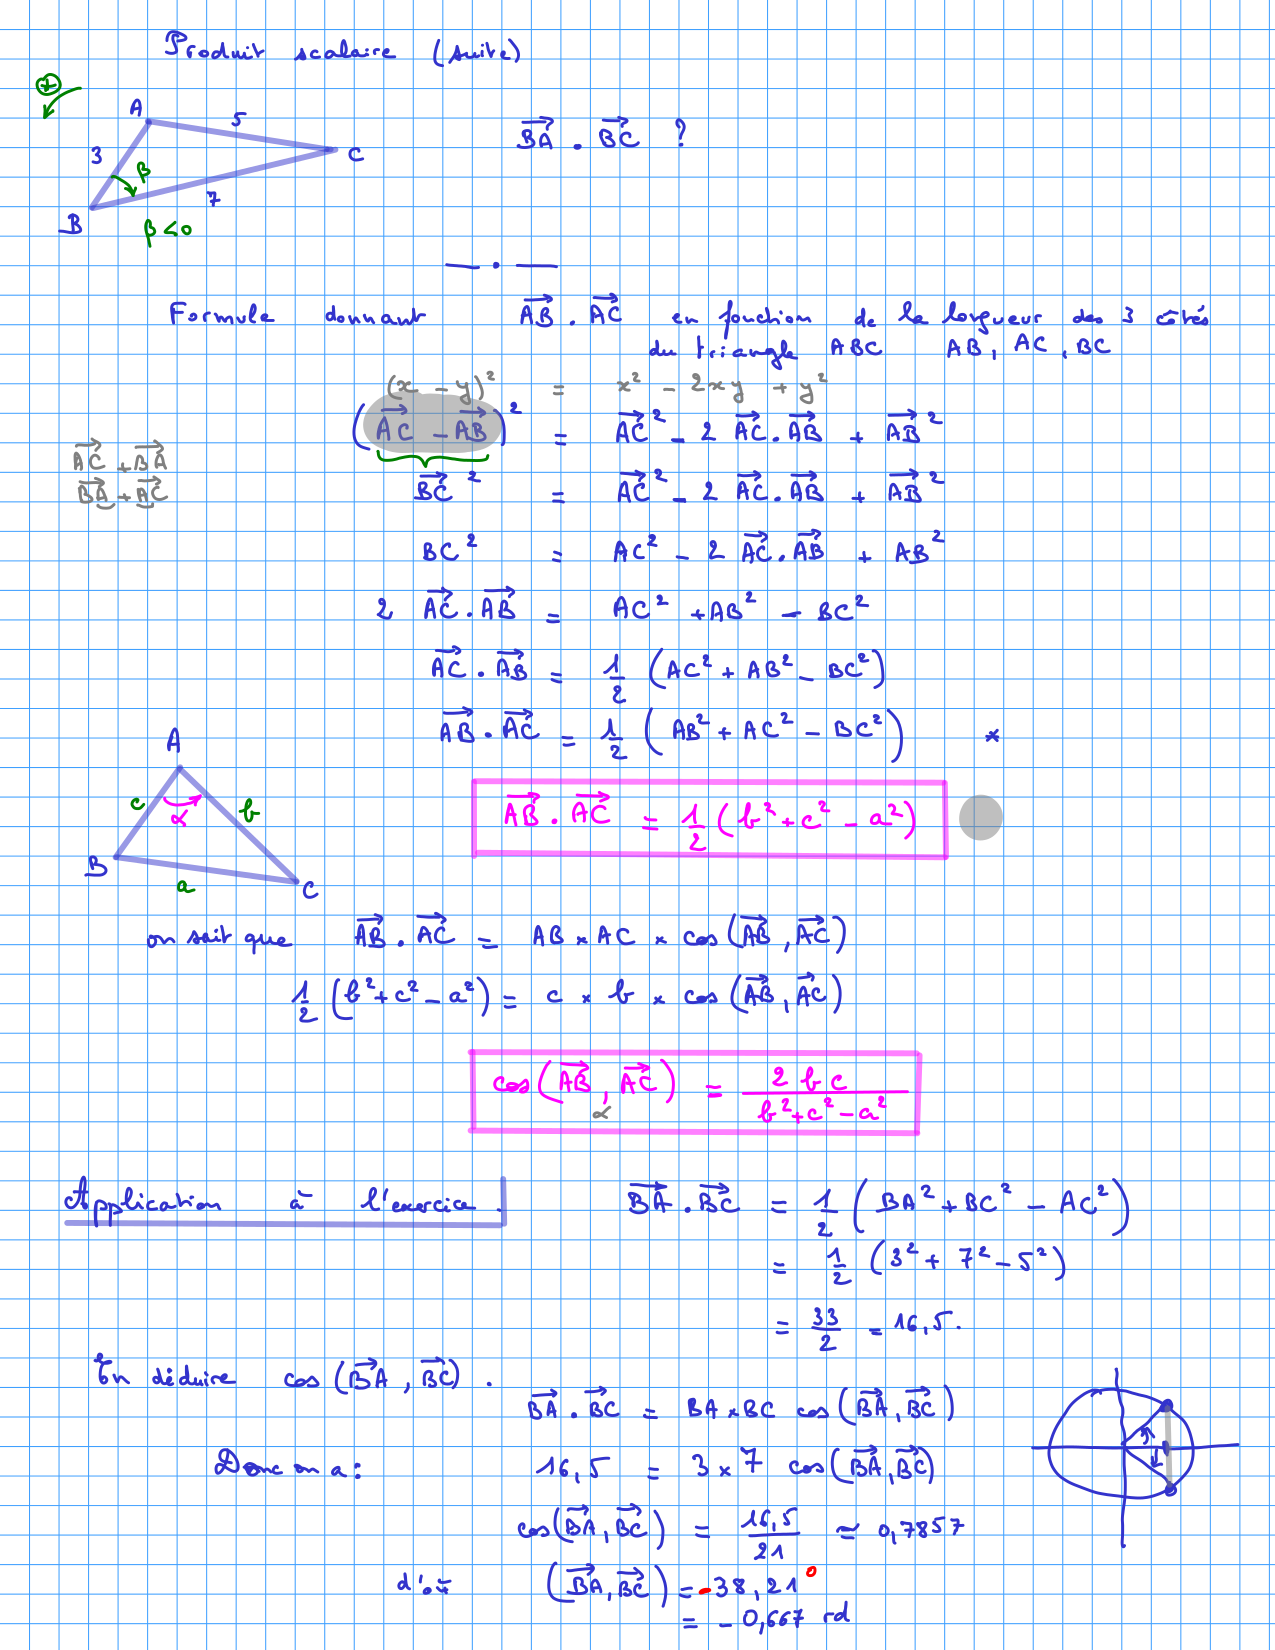 Produit scalaire (suite)
⊕
A 5 C
3 β
7
B
β<0
$\overrightarrow{BA} . \overrightarrow{BC}$ ?
— . —
Formule donnant $\overrightarrow{AB} . \overrightarrow{AC}$ en fonction de la longueur des 3 côtés
du triangle ABC AB, AC, BC
$(x - y)^2 = x^2 - 2xy + y^2$
$(\overrightarrow{AC} - \overrightarrow{AB})^2 = \overrightarrow{AC}^2 - 2 \overrightarrow{AC}.\overrightarrow{AB} + \overrightarrow{AB}^2$
$\overrightarrow{AC} + \overrightarrow{BA}$
$\overrightarrow{BA} + \overrightarrow{AC}$
$\overrightarrow{BC}^2 = \overrightarrow{AC}^2 - 2 \overrightarrow{AC}.\overrightarrow{AB} + \overrightarrow{AB}^2$
$BC^2 = AC^2 - 2 \overrightarrow{AC}.\overrightarrow{AB} + AB^2$
$2 \overrightarrow{AC}.\overrightarrow{AB} = AC^2 + AB^2 - BC^2$
$\overrightarrow{AC}.\overrightarrow{AB} = \frac{1}{2} (AC^2 + AB^2 - BC^2)$
$\overrightarrow{AB}.\overrightarrow{AC} = \frac{1}{2} (AB^2 + AC^2 - BC^2)$ *
A
c α b
B a C
$\overrightarrow{AB}.\overrightarrow{AC} = \frac{1}{2} (b^2 + c^2 - a^2)$
on sait que $\overrightarrow{AB}.\overrightarrow{AC} = AB × AC × cos(\overrightarrow{AB}, \overrightarrow{AC})$
$\frac{1}{2} (b^2 + c^2 - a^2) = c × b × cos(\overrightarrow{AB}, \overrightarrow{AC})$
$cos(\overrightarrow{AB}, \overrightarrow{AC}) = \frac{2 b c}{b^2 + c^2 - a^2}$
α
Application à l'exercice. $\overrightarrow{BA}.\overrightarrow{BC} = \frac{1}{2} (BA^2 + BC^2 - AC^2)$
$= \frac{1}{2} (3^2 + 7^2 - 5^2)$
$= \frac{33}{2} = 16,5.$
En déduire $cos(\overrightarrow{BA}, \overrightarrow{BC})$.
$\overrightarrow{BA}.\overrightarrow{BC} = BA × BC \ cos(\overrightarrow{BA}, \overrightarrow{BC})$
Donc on a : $16,5 = 3 × 7 \ cos(\overrightarrow{BA}, \overrightarrow{BC})$
$cos(\overrightarrow{BA}, \overrightarrow{BC}) = \frac{16,5}{21} ≃ 0,7857$
d'où $(\overrightarrow{BA}, \overrightarrow{BC}) = -38,21°$
$= -0,667$ rd